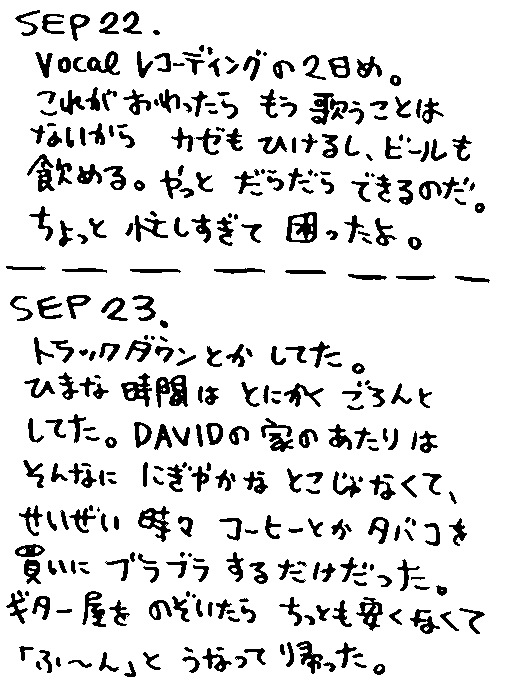 SEP 22.
Vocal レコーディングの2日め。
これが おわったら もう 歌うことは
ないから カゼも ひけるし、ビールも
飲める。やっと だらだら できるのだ。
ちょっと 忙しすぎて 困ったよ。
SEP 23.
トラックダウンとか してた。
ひまな 時間は とにかく ごろんと
してた。DAVIDの 家の あたりは
そんなに にぎやかな とこじゃなくて、
せいぜい 時々 コーヒーとか タバコを
買いに ブラブラ するだけだった。
ギター屋を のぞいたら ちっとも 安くなくて
「ふ〜ん」と うなって 帰った。